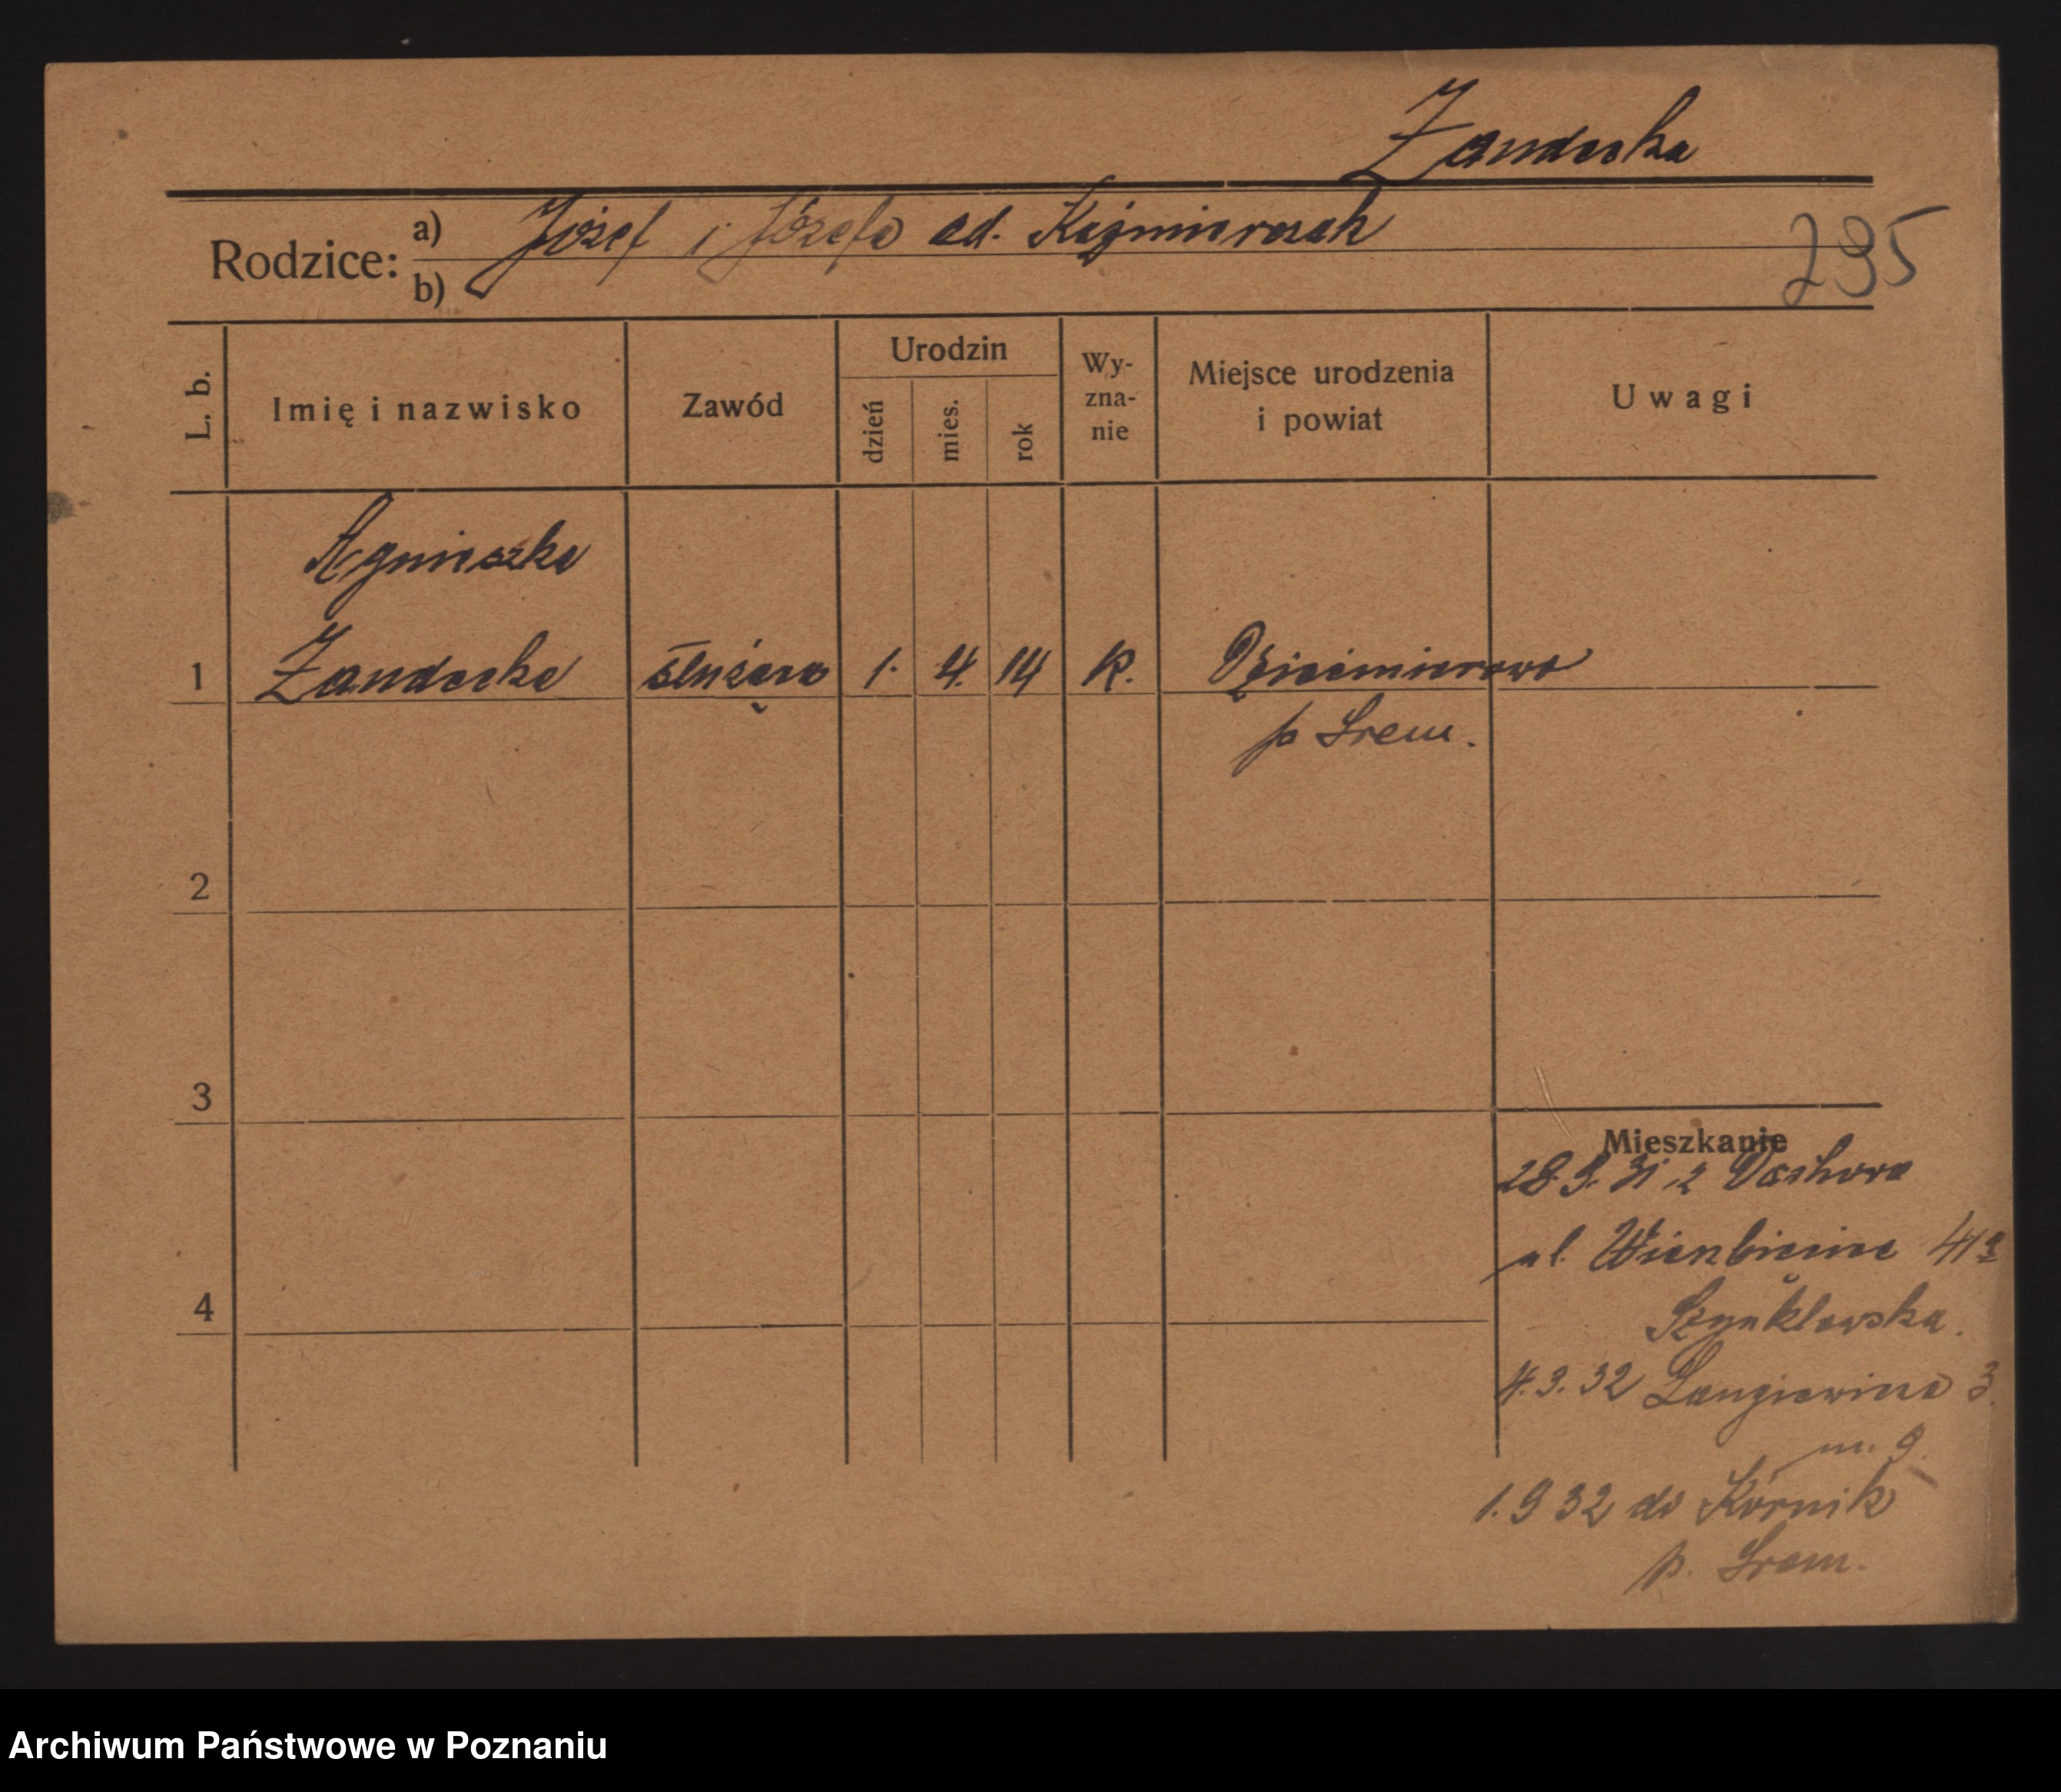 Zandecka
Rodzice: a) Józef i Józefa od. Kaźmierczak
b)
295
L. b.
Imię i nazwisko
Zawód
Urodzin
dzień
mies.
rok
Wy-
zna-
nie
Miejsce urodzenia
i powiat
Uwagi
Agnieszka
1 Zandecka służąca 1. 4. 14 R. Dziećmierowo
p Śrem.
2
3
4
Mieszkanie
28.9.31 z
ul. Wierzbięcice 41a
4.3.32 Langiewicza 3.
m. 9
1.9 32 do Kórnik
p. Śrem.
Archiwum Państwowe w Poznaniu